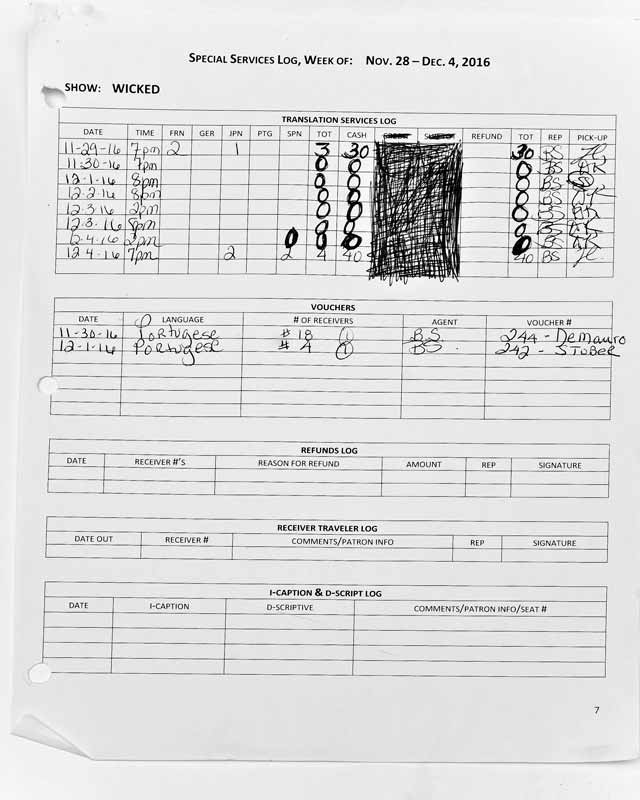 SPECIAL SERVICES LOG, WEEK OF: NOV. 28 – DEC. 4, 2016
SHOW: WICKED
TRANSLATION SERVICES LOG
DATE TIME FRN GER JPN PTG SPN TOT CASH REFUND TOT REP PICK-UP
11-29-16 7pm 2 1 3 30 30 BS
11-30-16 7pm 0 0 0 BS
12-1-16 8pm 0 0 0 BS
12-2-16 8pm 0 0 0 BS
12-3-16 2pm 0 0 0 BS
12-3-16 8pm 0 0 0 BS
12-4-16 2pm 0 0 0 0 BS
12-4-16 7pm 2 2 4 40 40 BS
VOUCHERS
DATE LANGUAGE # OF RECEIVERS AGENT VOUCHER #
11-30-16 Portugese # 18 (1) B.S. 244 - DeMauro
12-1-16 Portugese # 4 (1) BS. 242 - STOBER
REFUNDS LOG
DATE RECEIVER #'S REASON FOR REFUND AMOUNT REP SIGNATURE
RECEIVER TRAVELER LOG
DATE OUT RECEIVER # COMMENTS/PATRON INFO REP SIGNATURE
I-CAPTION & D-SCRIPT LOG
DATE I-CAPTION D-SCRIPTIVE COMMENTS/PATRON INFO/SEAT #
7